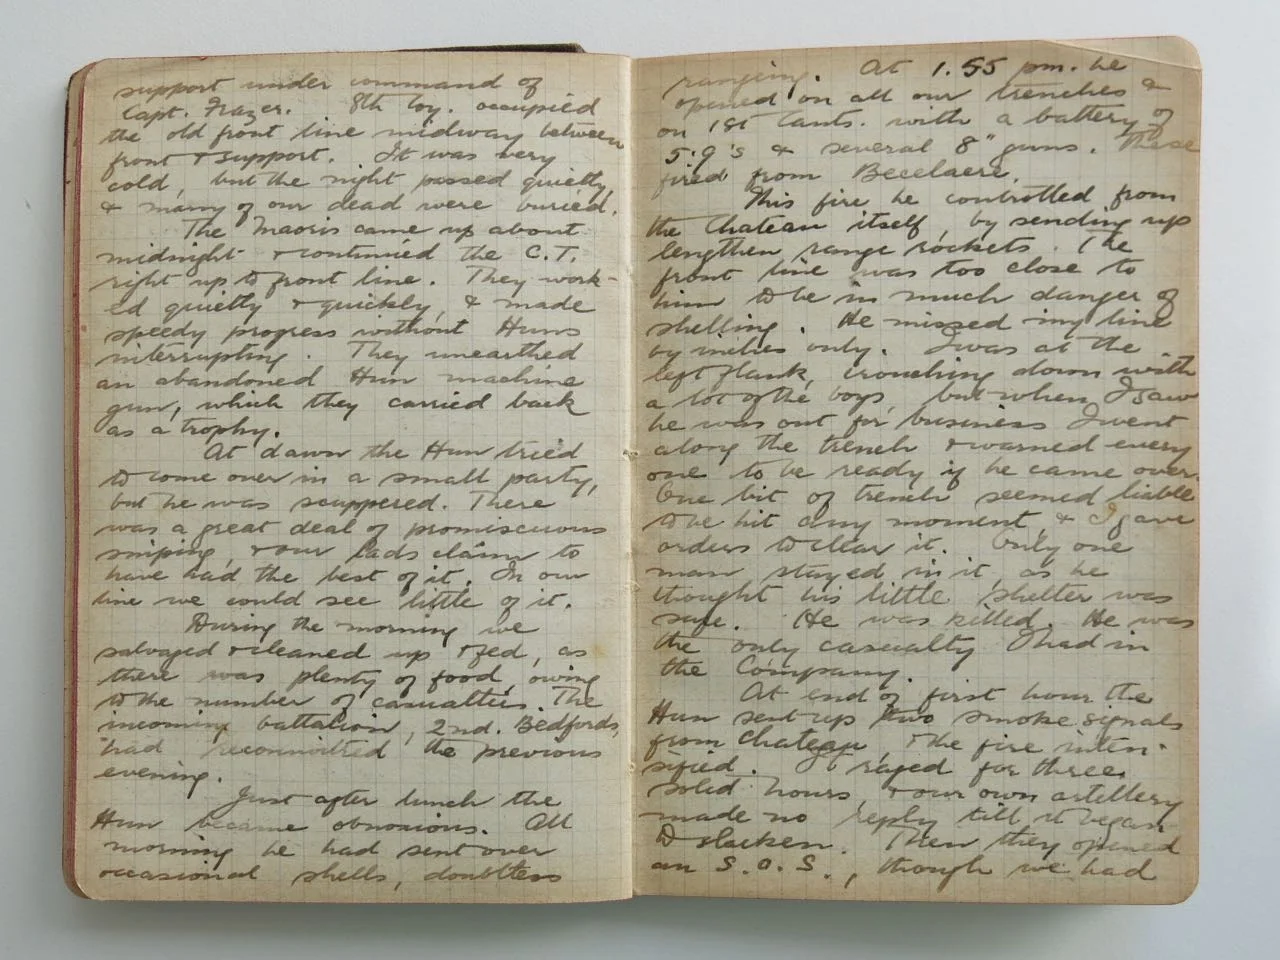 support under command of
Capt. Frazer. 8th Coy. occupied
the old front line midway between
front & support. It was very
cold, but the night passed quietly,
& many of our dead were buried.
The Maoris came up about
midnight & continued the C.T.
right up to front line. They work-
ed quietly & quickly, & made
speedy progress without Huns
interrupting. They unearthed
an abandoned Hun machine
gun, which they carried back
as a trophy.
At dawn the Hun tried
to come over in a small party,
but he was scuppered. There
was a great deal of promiscuous
sniping, & our lads claim to
have had the best of it. In our
line we could see little of it.
During the morning we
salvaged & cleaned up & fed, as
there was plenty of food, owing
to the number of casualties. The
incoming battalion, 2nd. Bedfords,
had reconnoitred the previous
evening.
Just after lunch the
Hun became obnoxious. All
morning he had sent over
occasional shells, doubtless
ranging. At 1.55 pm. he
opened on all our trenches &
on 1st Cants. with a battery of
5.9's & several 8" guns. These
fired from Becelaere.
This fire he controlled from
the Chateau itself, by sending up
lengthen range rockets. The
front line was too close to
him to be in much danger of
shelling. He missed my line
by inches only. I was at the
left flank, crouching down with
a lot of the boys, but when I saw
he was out for business I went
along the trench & warned every
one to be ready if he came over.
One bit of trench seemed liable
to be hit any moment, & I gave
orders to clear it. Only one
man stayed in it, as he
thought his little shelter was
safe. He was killed. He was
the only casualty I had in
the Company.
At end of first hour the
Hun sent up two smoke signals
from Chateau, & the fire inten-
sified. It raged for three
solid hours, & our own artillery
made no reply till it began
to slacken. Then they opened
an S.O.S., though we had